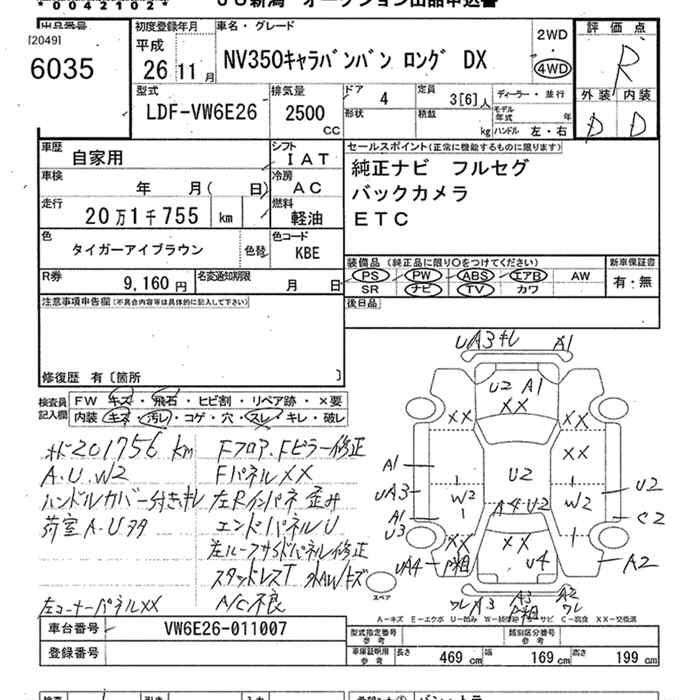 *00421021*
JU新潟 オークション出品申込書
出品番号
[2049]
6035
初度登録年月
平成
26 11 月
車名・グレード
NV350キャラバンバン ロング DX
2WD
4WD
評価点
R
外装 内装
D D
型式
LDF-VW6E26
排気量
2500
CC
ドア
4
形状
定員
3[6]人
積載
kg
ディーラー・並行
モデル年式 年
ハンドル 左・右
車歴
自家用
シフト
IAT
車検
年 月( 日)
冷房
AC
走行
20万1千755 km
燃料
軽油
色
タイガーアイブラウン
色替
色コード
KBE
R券
9,160円
名変通知期限
月 日
セールスポイント(正常に機能するものに限ります)
純正ナビ フルセグ
バックカメラ
ETC
装備品(純正品に限り○をつけてください)
PS PW ABS エアB AW
SR ナビ TV カワ
新車保証書
有・無
後日品
注意事項申告欄(不具合内容等は具体的に記入して下さい)
修復歴 有〔箇所 〕
検査員記入欄
FW キズ・飛石・ヒビ割・リペア跡・×要
内装 キズ・汚レ・コゲ・穴・スレ・キレ・破レ
201756 km
A.U.W2
ハンドルカバー付きキレ
荷室A.U多
左コーナーパネルXX
Fフロア.Fピラー修正
FパネルXX
左Rインパネ歪み
エンドパネルU
左ルーフサイドパネル修正
スタッドレスT 外AWキズ
A/C不良
UA3キレ A1
U2 A1
XX
XX XX
XX
A1
U2
UA3 W2 A4・U2 W2 U2
A1 C2
U3
XX XX
UA4 P粗 U4 A2
スペア
ワレA3 A3 P粗 A2 ワレ
A−キズ E−エクボ U−凹み W−補修跡 S−サビ C−腐食 XX−交換済
車台番号
VW6E26-011007
登録番号
型式指定番号
参考
類別区分番号
参考
車庫証明用
参考
長さ 469 cm 幅 169 cm 高さ 199 cm